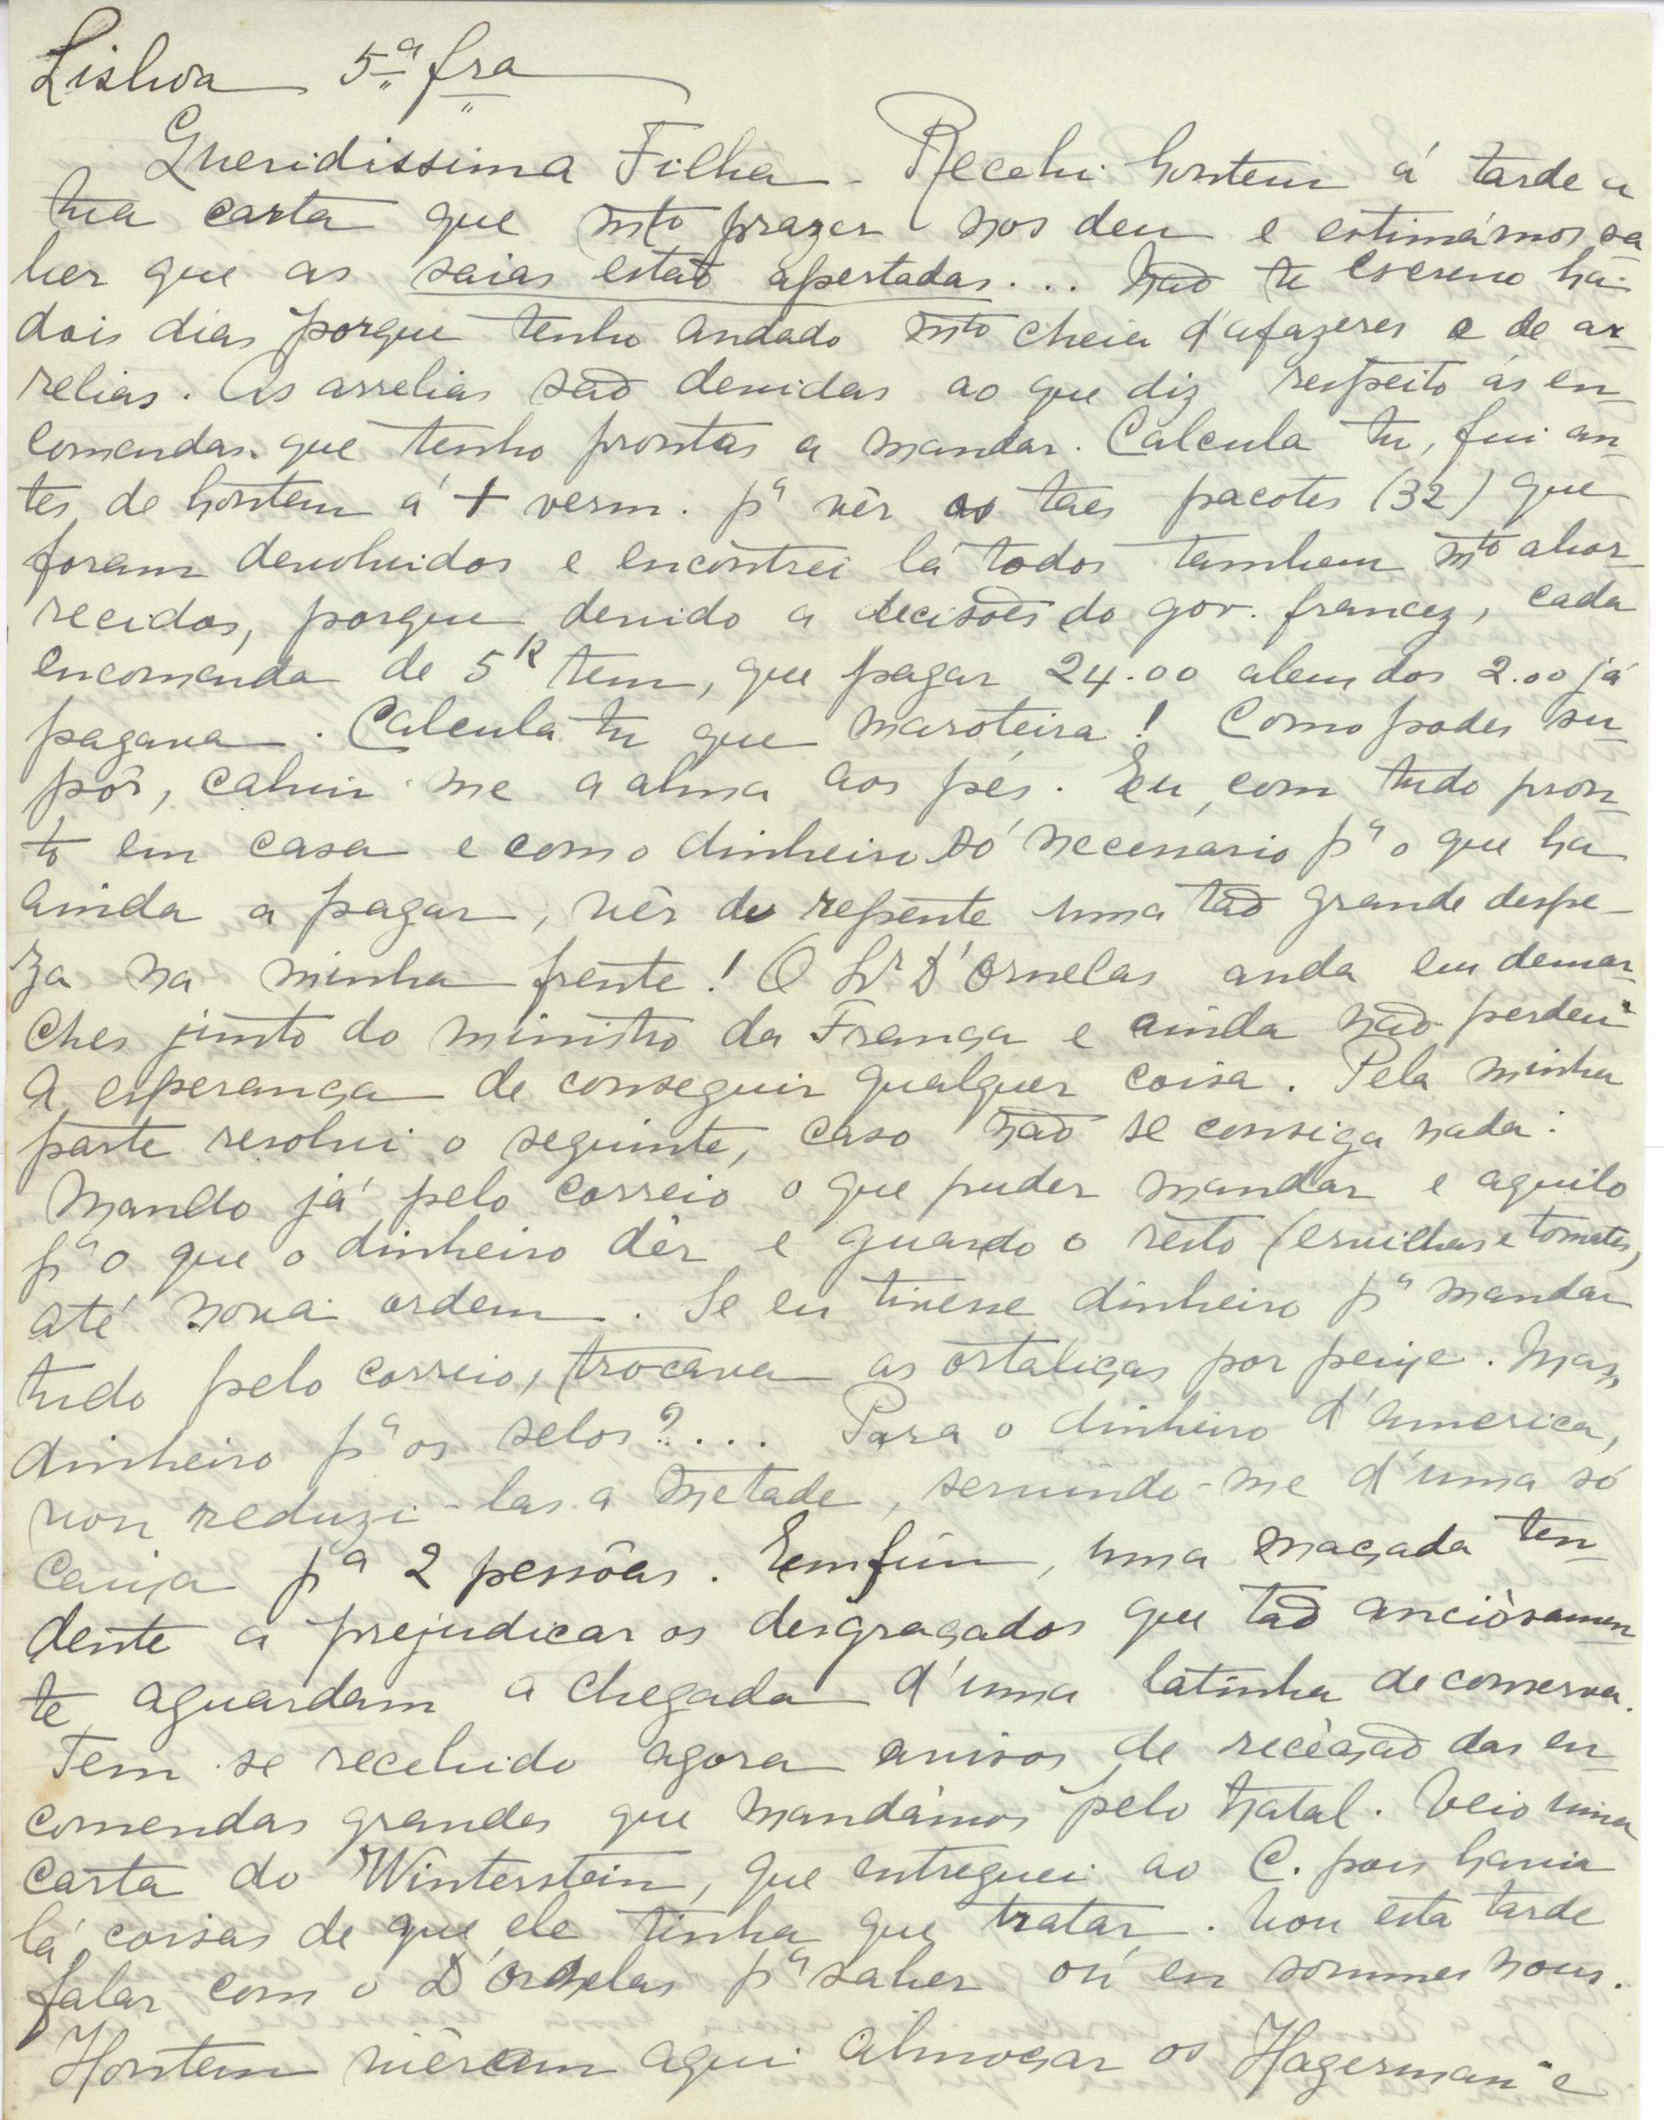 Lisboa 5ª fra
Queridissima Filha - Recebi hontem á tarde a
tua carta que mto prazer nos deu e estimámos sa
ber que as saias estão apertadas... Não te escrevo há
dois dias porque tenho andado mto cheia d'afazeres e de ar-
relias. As arrelias são devidas ao que diz respeito ás en-
comendas que tenho prontas a mandar. Calcula tu, fui an-
tes de hontem á + verm. pª vêr os taes pacotes (32) que
foram devolvidos e encontrei lá todos tambem mto abor-
recidos, porque devido a decisões do gov. francez, cada
encomenda de 5k tem, que pagar 24.00 alem dos 2.00 já
pagava. Calcula tu que maroteira! Como podes su-
pôr, cahiu-me a alma aos pés. Eu, com tudo pron-
to em casa e com o dinheiro só necessario pª o que ha
ainda a pagar, vêr de repente uma tão grande despe-
za na minha frente! O Sr. D'Ornelas anda em demar-
ches junto do ministro da França e ainda não perdeu
a esperança de conseguir qualquer coisa. Pela minha
parte resolvi o seguinte, caso não se consiga nada:
Mando já pelo correio o que puder mandar e aquilo
pª o que o dinheiro dêr e guardo o resto (ervilhas e tomates,
até nova ordem. Se eu tivesse dinheiro pª mandar
tudo pelo correio, trocava as ortaliças por peixe. Mas,
dinheiro pª os selos?... Para o dinheiro d'america,
vou reduzi-las a metade, servindo-me d'uma só
caixa pª 2 pessôas. Emfim, uma maçada ten-
dente a prejudicar os desgraçados que tão anciòsamen
te aguardam a chegada d'uma latinha de conserva.
Tem-se recebido agora avisos de receção das en-
comendas grandes que mandámos pelo Natal. Veio uma
carta do Winterstein, que entreguei ao C. pois havia
lá coisas de que ele tinha que tratar. Vou esta tarde
falar com o D'Ornelas pª saber où en sommes nous.
Hontem viéram aqui almoçar os Hagerman e